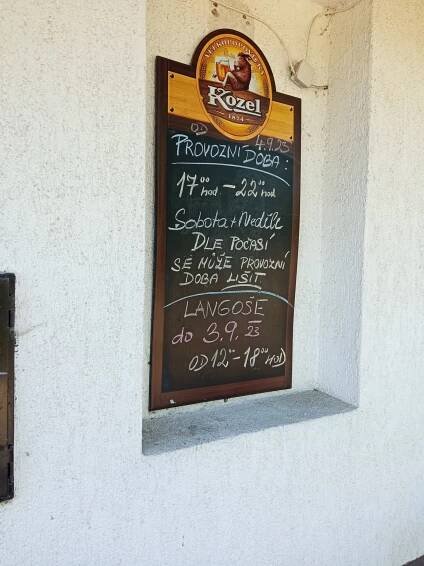 VELKOPOPOVICKÝ
Kozel
1874
OD 4.9.23
PROVOZNÍ DOBA:
17⁰⁰ hod - 22⁰⁰ hod
Sobota + Neděle
DLE POČASÍ
SE MŮŽE PROVOZNÍ
DOBA LIŠIT.
LANGOŠE
do 3.9.23
OD 12⁰⁰ - 18⁰⁰ HOD